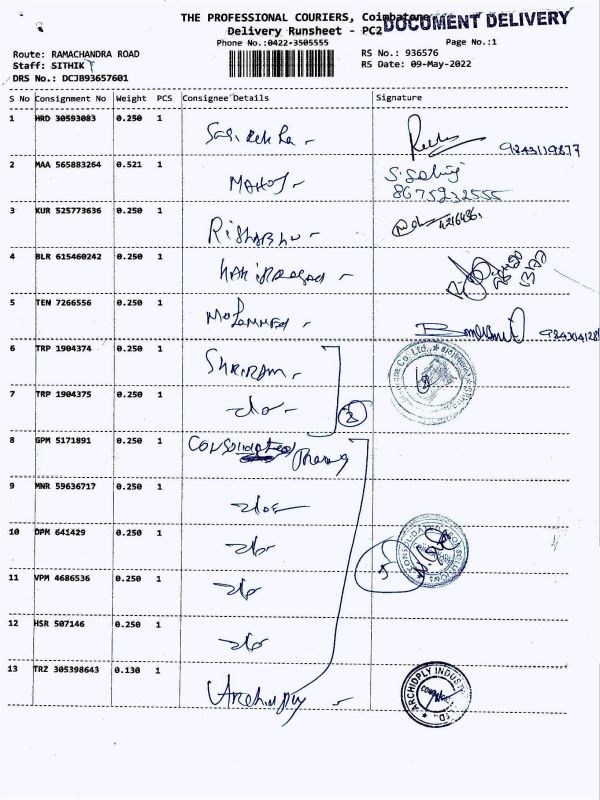 THE PROFESSIONAL COURIERS, Coimbatore
DOCUMENT DELIVERY
Delivery Runsheet - PC2
Phone No.:0422-3505555
Page No.:1
Route: RAMACHANDRA ROAD
RS No.: 936576
Staff: SITHIK
RS Date: 09-May-2022
DRS No.: DCJB93657601
S No Consignment No Weight PCS Consignee Details Signature
1 HRD 30593083 0.250 1
2 MAA 565883264 0.521 1 MANOJ 8675232555
3 KUR 525773636 0.250 1
4 BLR 615460242 0.250 1
5 TEN 7266556 0.250 1 Mohammed
6 TRP 1904374 0.250 1 SHRIRAM
7 TRP 1904375 0.250 1 do 2
8 GPM 5171891 0.250 1 Consolidated
9 MNR 59636717 0.250 1 do
10 DPM 641429 0.250 1 do 5
11 VPM 4686536 0.250 1 do
12 HSR 507146 0.250 1 do
13 TRZ 305398643 0.130 1 Archidply ARCHIDPLY INDUST